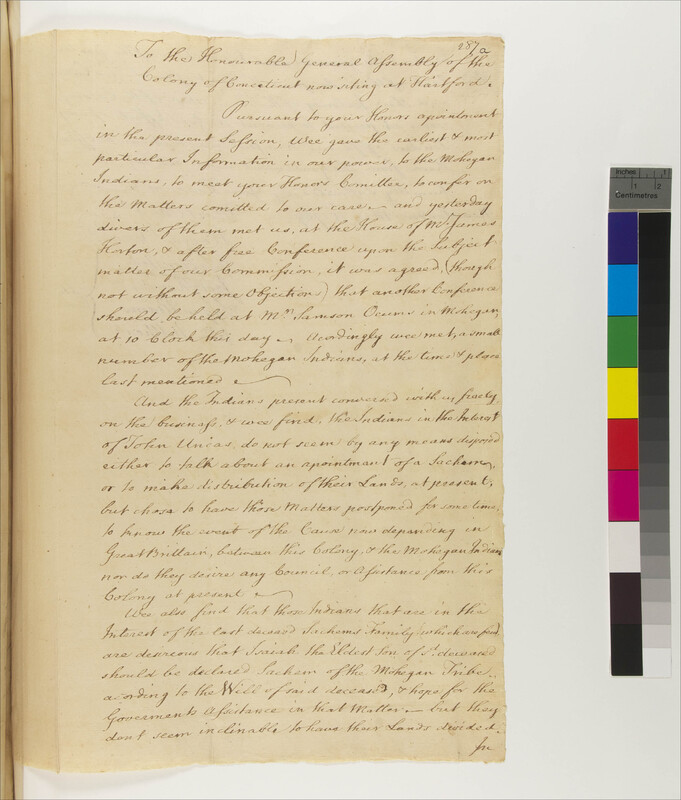 287a
To the Honourable General Assembly of the
Colony of Conecticut now siting at Hartford.
Pursuant to your Honors apointment
in the present Session, Wee gave the earliest & most
particular Information in our power, to the Mohegan
Indians, to meet your Honors Comittee, to confer on
the Matters comitted to our care — and yesterday
divers of them met us, at the House of Mr. James
Horton, & after free Conference upon the Subject
matter of our Commission, it was agreed, (though
not without some Objections) that another Conference
should be held at Mr. Samson Ocums in Mohegan,
at 10 Clock this day — Acordingly wee met, a small
number of the Mohegan Indians, at the time & place
last mentioned —
And the Indians present conversed with us freely
on the business, & wee find, the Indians in the Interest
of John Uncas, do not seem by any means disposed
either to talk about an apointment of a Sachem,
or to make distribution of their Lands, at present;
but chose to have those Matters postponed for some time,
to know the event of the Cause now depending in
Great Brittain, between this Colony, & the Mohegan Indians
nor do they desire any Council, or Assistance from this
Colony at present —
Wee also find that those Indians that are in the
Interest of the last deceased Sachems Family, which are few
are desireous that Isaiah the Eldest Son of sd. deceased
should be declared Sachem of the Mohegan Tribe,
acording to the Will of said deceased, & hope for the
Goverments Assistance in that Matter — but they
dont seem inclinable to have their Lands divided.
In
Inches
1
1
2
Centimetres